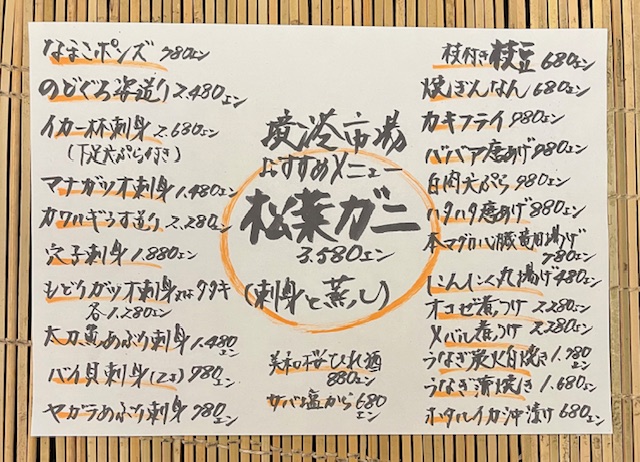 なまこポンズ 780エン
のどぐろ姿造り 2.480エン
イカ一杯刺身 2.680エン
(下足天ぷら付き)
マナガツオ刺身 1.480エン
カワハギうす造り 2.280エン
穴子刺身 1.880エン
もどりガツオ刺身又はタタキ
各1.280エン
太刀魚あぶり刺身 1.480エン
バイ貝刺身(2コ) 980エン
ヤガラあぶり刺身 980エン
境港市場
おすすめメニュー
松葉ガニ
3.580エン
(刺身と蒸し)
美和桜ひれ酒
880エン
サバ塩から 680エン
枝付き枝豆 680エン
焼ぎんなん 680エン
カキフライ 980エン
ババア唐あげ 980エン
白肉天ぷら 980エン
ハタハタ唐あげ 880エン
本マグロ心臓竜田揚げ
780エン
にんにく丸揚げ 480エン
オコゼ煮つけ 2.280エン
メバル煮つけ 2.280エン
うなぎ炭火白焼き 1.980エン
うなぎ蒲焼き 1.680エン
ホタルイカ沖漬け 680エン